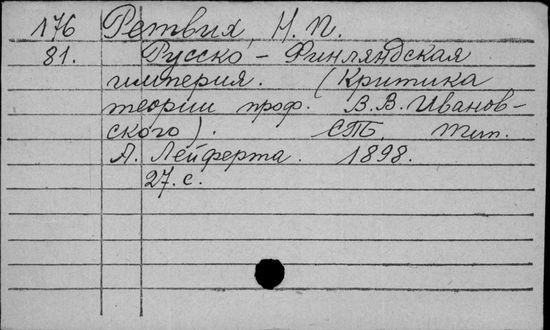 176 Ретвих, Н. П.
81. Русско-Финляндская
империя. (Критика
теории проф. В.В. Иванов-
ского). СПБ. Тип.
А. Лейферта. 1898.
27. с.